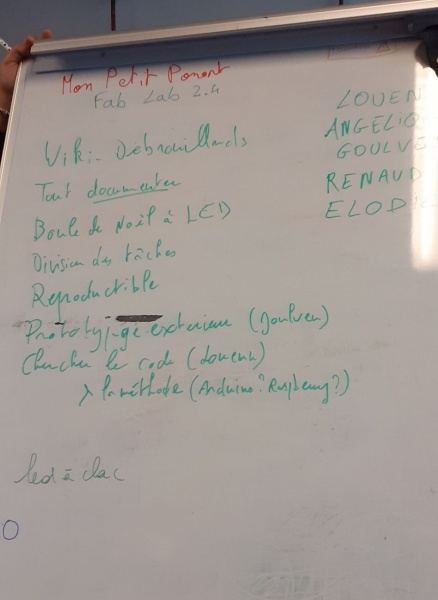 Mon Petit Ponant
Fab Lab 2.4
Wiki-Debrouillards
Tout documenter
Boule de Noël à LED
Division des tâches
Reproductible
Prototypage exterieur (Goulven)
Chercher le code (Louenn)
> la méthode (Arduino? Raspberry?)
led à clac
LOUEN
ANGELIQ
GOULVE
RENAUD
ELODI